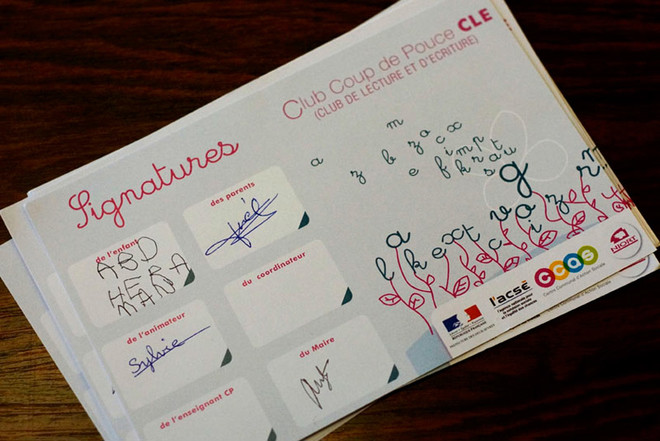 Club Coup de Pouce CLE
(CLUB DE LECTURE ET D'ÉCRITURE)
Signatures
de l'enfant
ABD
HERA
MANA
des parents
du coordinateur
de l'animateur
Sylvie
du Maire
de l'enseignant CP
a m
z b z o c x
e f i m p
f k r a t
s a u
g
a
l k e x t v a z r m
l'acsé
ccas
Centre Communal d'Action Sociale
NIORT
RÉPUBLIQUE FRANÇAISE